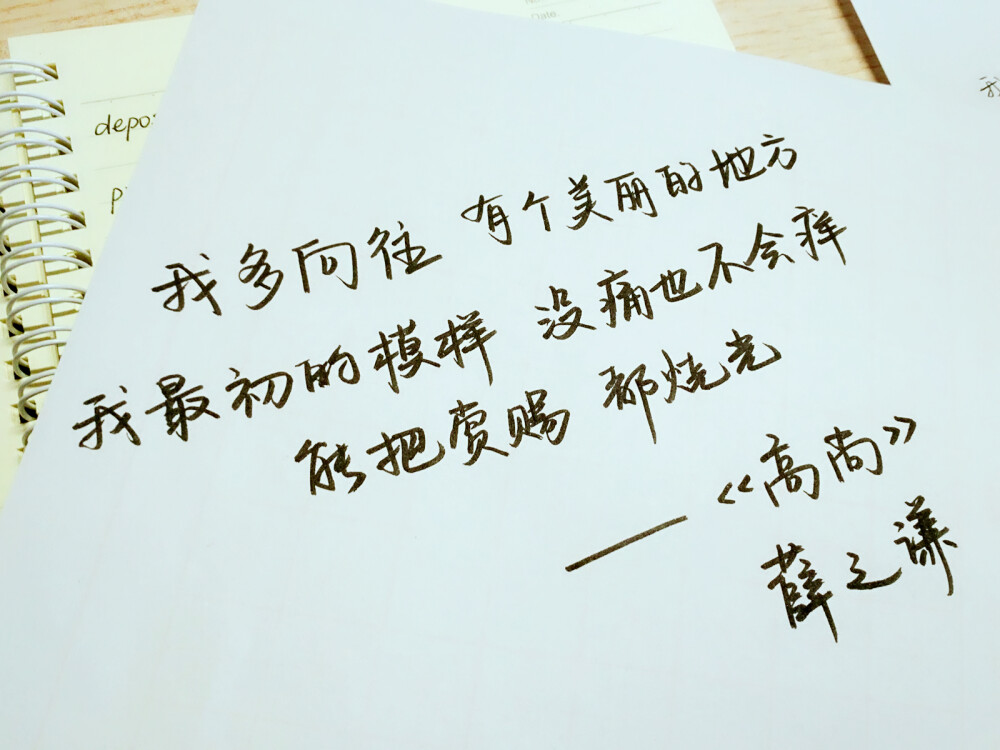 Date
我多向往 有个美丽的地方
我最初的模样 没痛也不会痒
能把赏赐 都烧光
——《高尚》
薛之谦
我